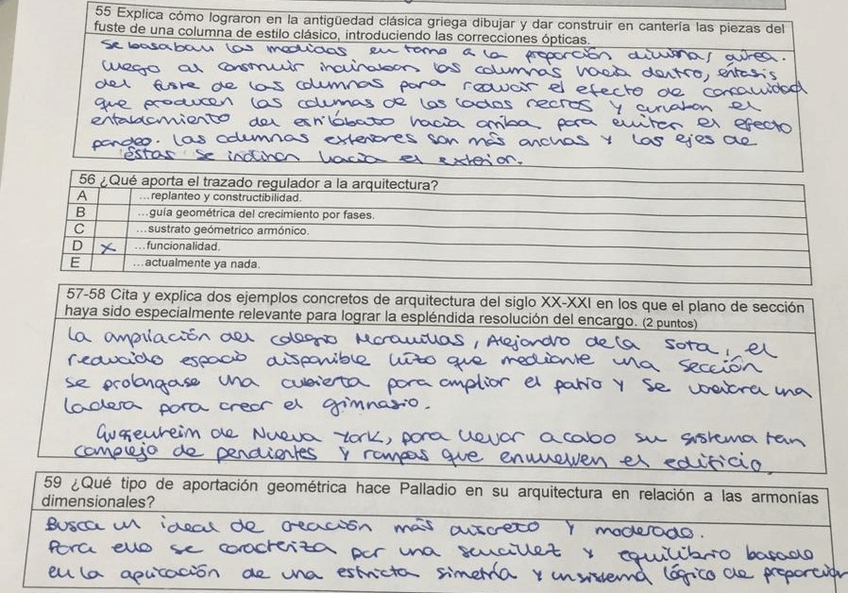 55 Explica cómo lograron en la antigüedad clásica griega dibujar y dar construir en cantería las piezas del
fuste de una columna de estilo clásico, introduciendo las correcciones ópticas.
Se basaban las medidas en torno a la proporción divina / aúrea.
Luego al construir inclinaban las columnas hacia dentro, éntasis
del fuste de las columnas para reducir el efecto de concavidad
que producen las columas de los lados rectos y curvaban el
entablamiento del estilóbato hacia arriba para evitar el efecto
pandeo. Las columnas exteriores son más anchas y los ejes de
éstas se inclinan hacia el exterior.
56 ¿Qué aporta el trazado regulador a la arquitectura?
A ...replanteo y constructibilidad.
B ...guía geométrica del crecimiento por fases.
C ...sustrato geómetrico armónico.
D x ...funcionalidad.
E ...actualmente ya nada.
57-58 Cita y explica dos ejemplos concretos de arquitectura del siglo XX-XXI en los que el plano de sección
haya sido especialmente relevante para lograr la espléndida resolución del encargo. (2 puntos)
La ampliación del colegio Maravillas, Alejandro de la Sota, el
reducido espacio disponible hizo que mediante una sección
se prolongase una cubierta para ampliar el patio y se una
ladera para crear el gimnasio.
Guggenheim de Nueva York, para llevar a cabo su sistema tan
complejo de pendientes y rampas que envuelven el edificio.
59 ¿Qué tipo de aportación geométrica hace Palladio en su arquitectura en relación a las armonías
dimensionales?
Busca un ideal de creación más discreto y moderado.
Para ello se caracteriza por una sencillez y equilibrio basado
en la aplicación de una estricta simetría y un sistema lógico de proporción